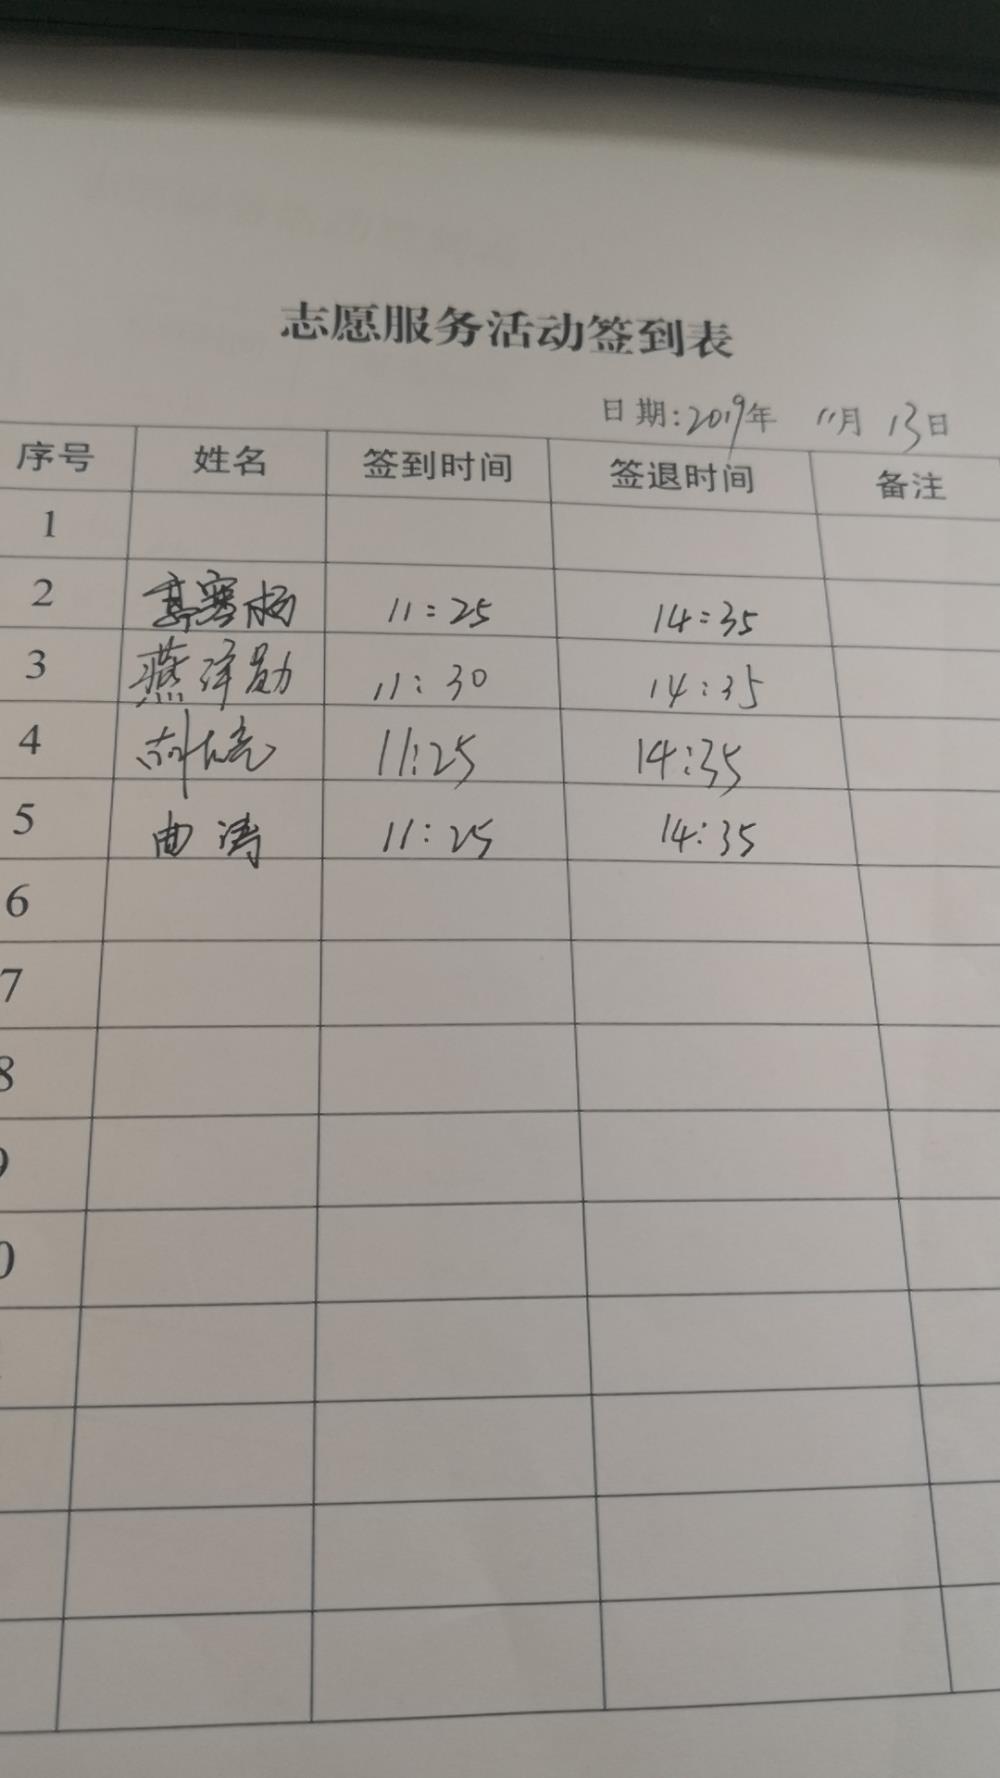 志愿服务活动签到表
日期:2019年 11月 13日
序号 姓名 签到时间 签退时间 备注
1
2 11:25 14:35
3 燕泽勋 11:30 14:35
4 11:25 14:35
5 曲涛 11:25 14:35
6
7
8
9
0